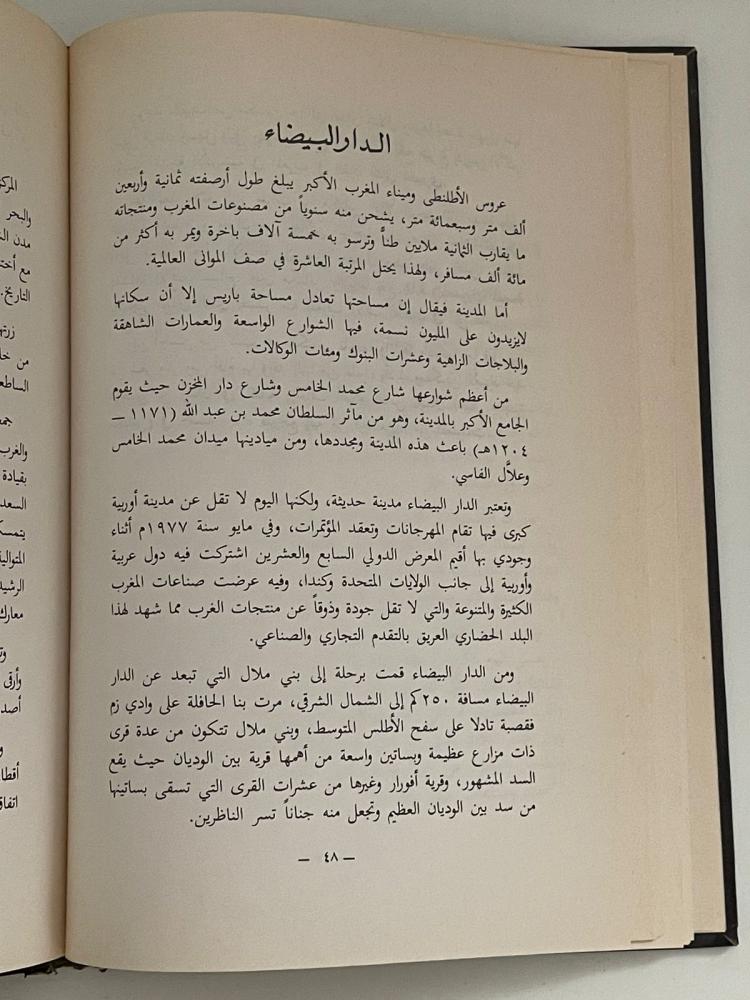 الدار البيضاء
عروس الأطلنطى وميناء المغرب الأكبر يبلغ طول أرصفته ثمانية وأربعين
ألف متر وسبعمائة متر، يشحن منه سنوياً من مصنوعات المغرب ومنتجاته
ما يقارب الثمانية ملايين طناً وترسو به خمسة آلاف باخرة ويمر به أكثر من
مائة ألف مسافر، ولهذا يحتل المرتبة العاشرة في صف الموانى العالمية.
أما المدينة فيقال إن مساحتها تعادل مساحة باريس إلا أن سكانها
لايزيدون على المليون نسمة، فيها الشوارع الواسعة والعمارات الشاهقة
والبلاجات الزاهية وعشرات البنوك ومئات الوكالات.
من أعظم شوارعها شارع محمد الخامس وشارع دار المخزن حيث يقوم
الجامع الأكبر بالمدينة، وهو من مآثر السلطان محمد بن عبد الله (١١٧١ —
١٢٠٤هـ) باعث هذه المدينة ومجددها، ومن ميادينها ميدان محمد الخامس
وعلاَّل الفاسي.
وتعتبر الدار البيضاء مدينة حديثة، ولكنها اليوم لا تقل عن مدينة أوربية
كبرى فيها تقام المهرجانات وتعقد المؤتمرات، وفي مايو سنة ١٩٧٧م أثناء
وجودي بها أقيم المعرض الدولي السابع والعشرين اشتركت فيه دول عربية
وأوربية إلى جانب الولايات المتحدة وكندا، وفيه عرضت صناعات المغرب
الكثيرة والمتنوعة والتي لا تقل جودة وذوقاً عن منتجات الغرب مما شهد لهذا
البلد الحضاري العريق بالتقدم التجاري والصناعي.
ومن الدار البيضاء قمت برحلة إلى بني ملال التي تبعد عن الدار
البيضاء مسافة ٢٥٠كم إلى الشمال الشرقي، مرت بنا الحافلة على وادي زم
فقصبة تادلا على سفح الأطلس المتوسط، وبني ملال تتكون من عدة قرى
ذات مزارع عظيمة وبساتين واسعة من أهمها قرية بين الوديان حيث يقع
السد المشهور، وقرية أفورار وغيرها من عشرات القرى التي تسقى بساتينها
من سد بين الوديان العظيم وتجعل منه جناناً تسر الناظرين.
— ٤٨ —